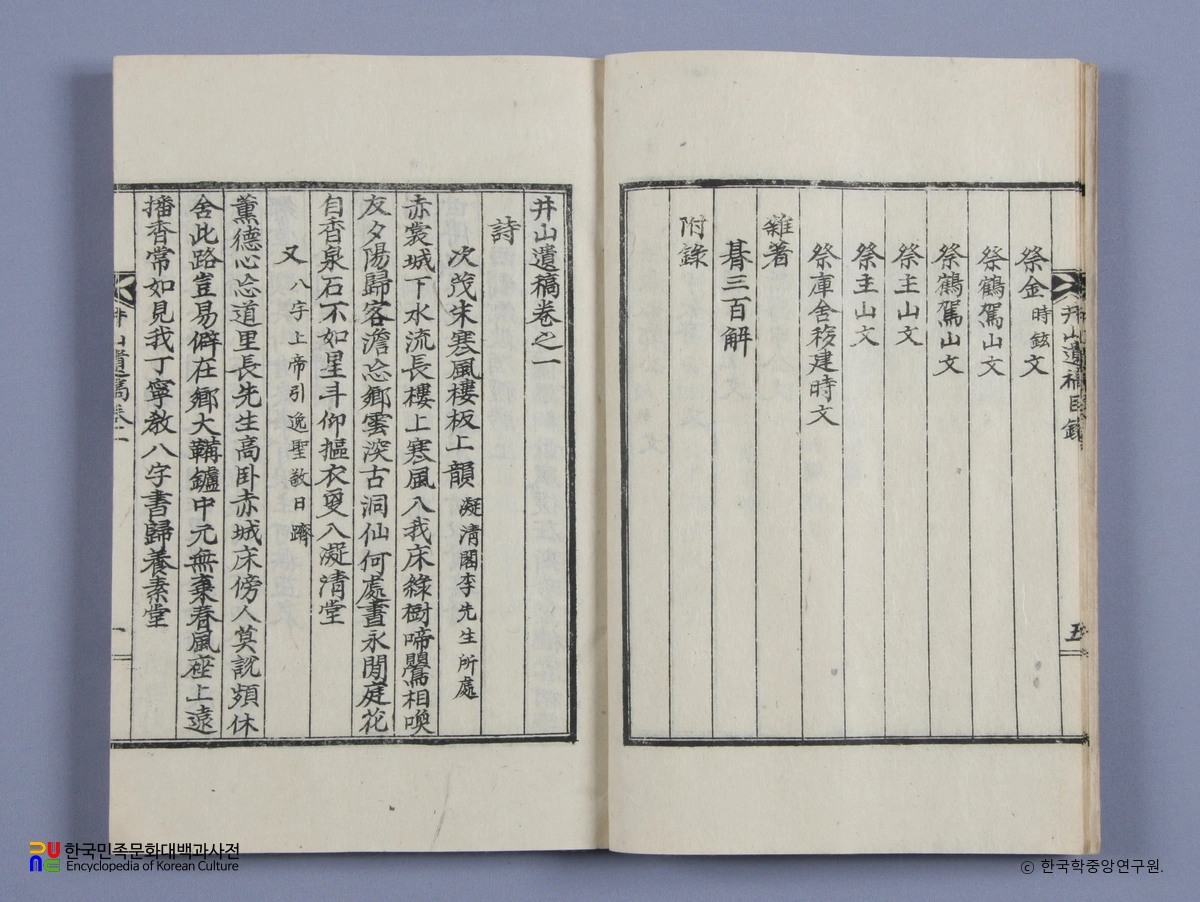 祭金時鉉文
祭鶴駕山文
祭鶴駕山文
祭主山文
祭主山文
祭庫舍移建時文
雜著
朞三百解
附錄
井山遺稿目錄
五
井山遺稿卷之一
詩
次茂朱寒風樓板上韻 凝清閣李先生所處
赤裳城下水流長樓上寒風入我床綠樹啼鸎相喚
友夕陽歸客澹忘鄕雲深古洞仙何處晝永閒庭花
自香泉石不如星斗仰摳衣更入凝清堂
又 八字上帝引逸聖敬日躋
薰德心忘道里長先生高臥赤城床傍人莫說頻休
舍此路豈易僻在鄕大韛鑪中元無棄春風座上遠
播香常如見我丁寧敎八字書歸養素堂
井山遺稿卷一
一
한국민족문화대백과사전
Encyclopedia of Korean Culture
ⓒ 한국학중앙연구원.